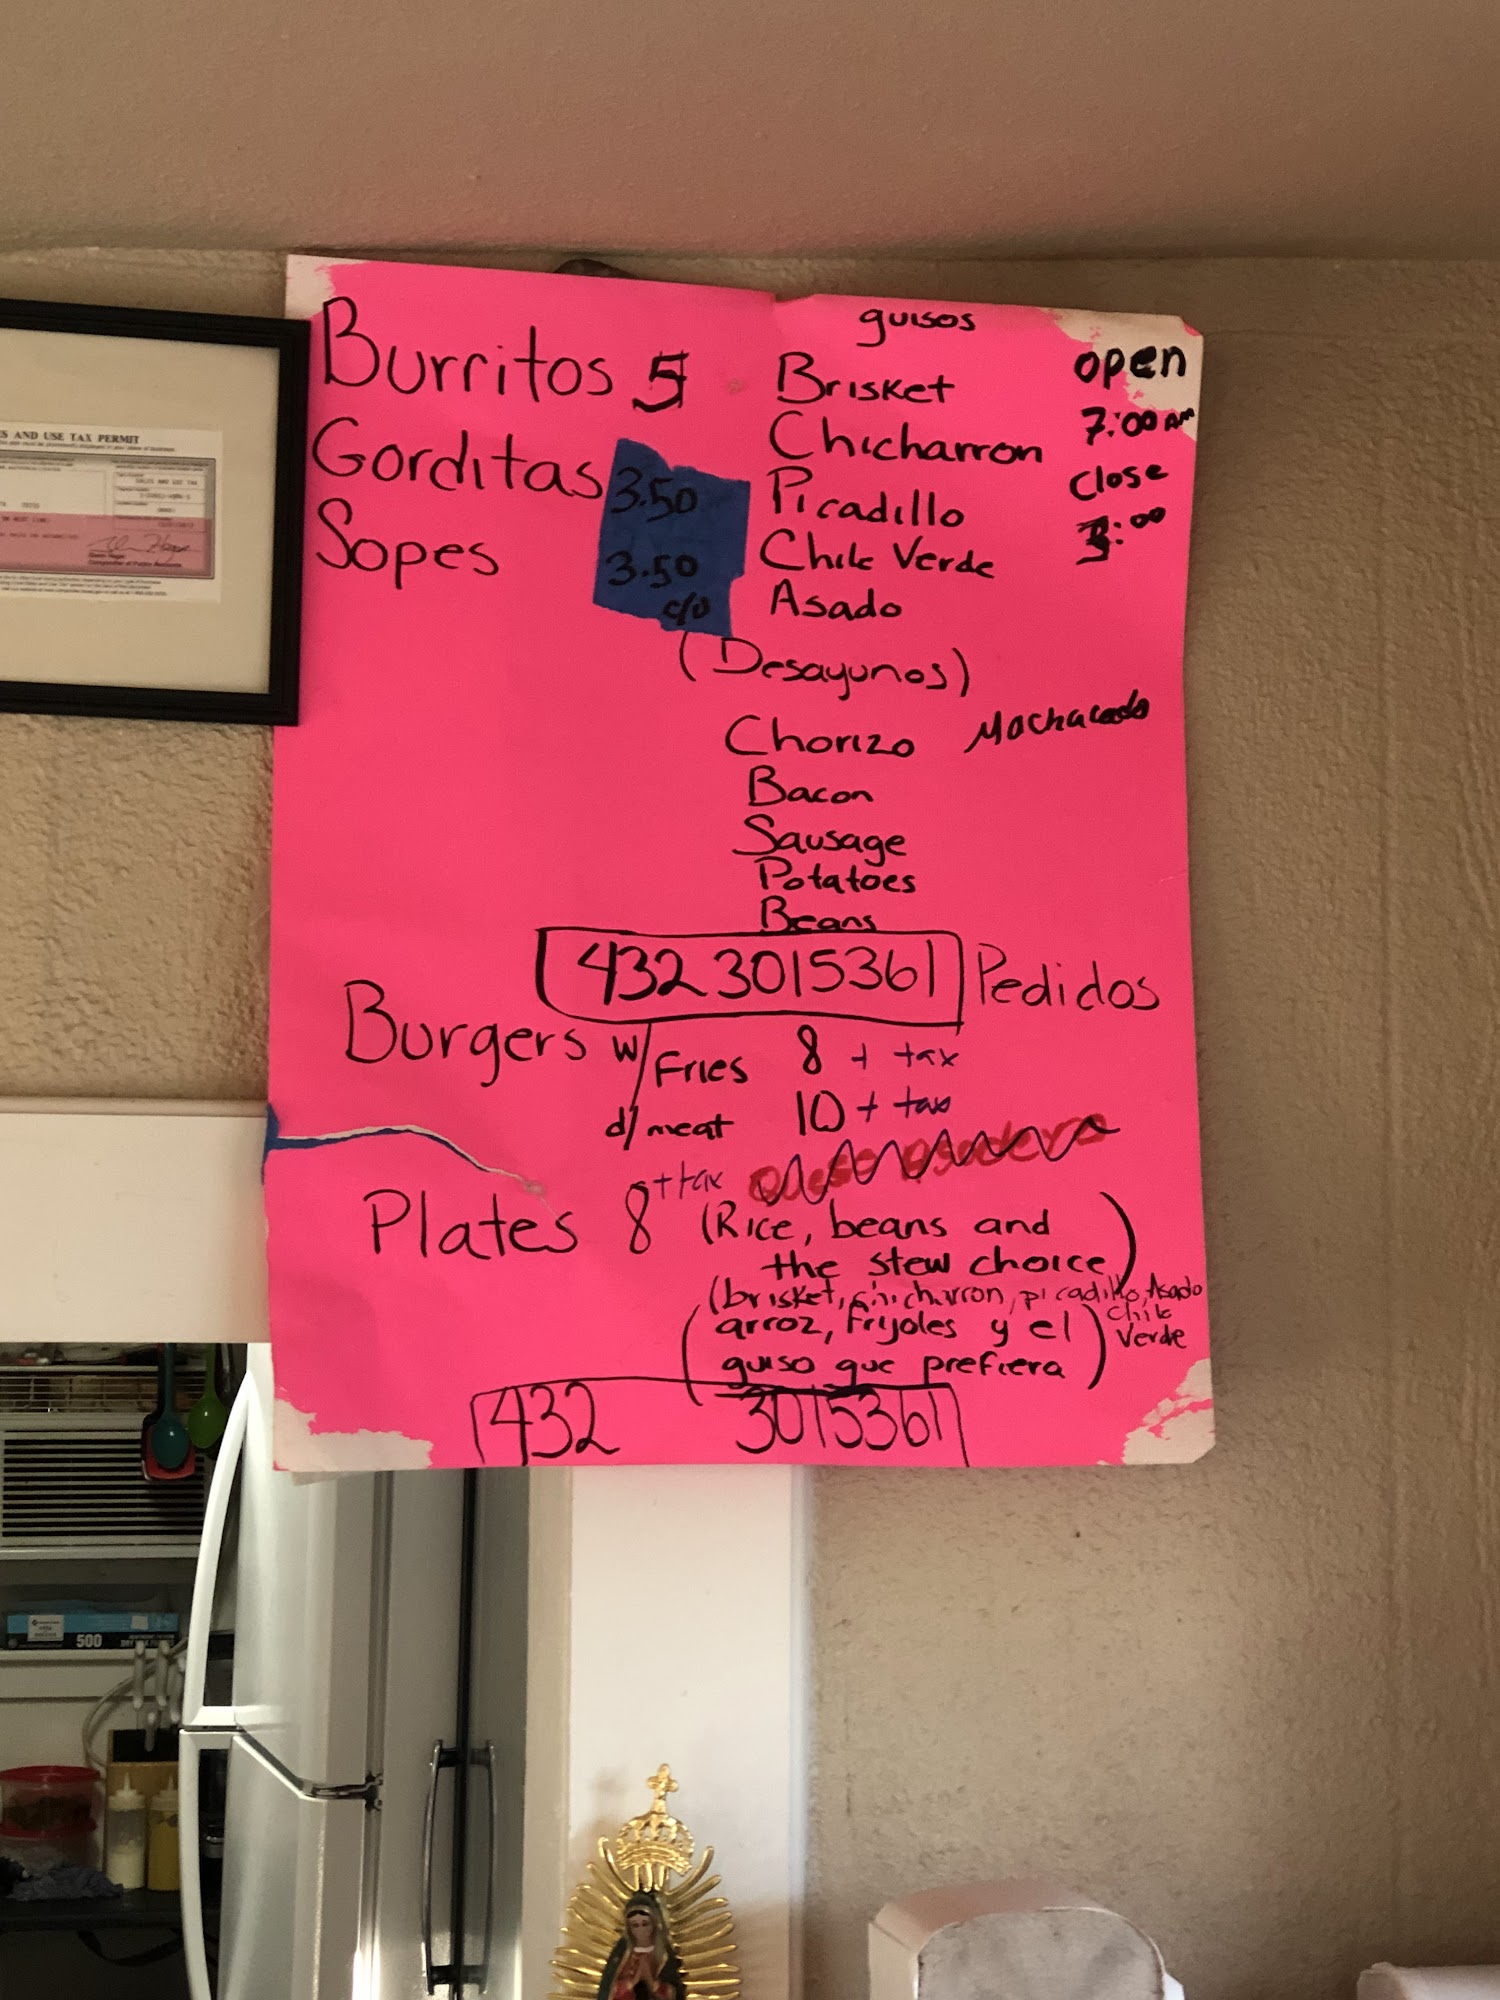 S AND USE TAX PERMIT
guisos
Burritos 5
Gorditas 3.50
Sopes 3.50
c/u
Brisket
Chicharron
Picadillo
Chile Verde
Asado
open
7:00 AM
Close
3:00
(Desayunos)
Chorizo Machacado
Bacon
Sausage
Potatoes
Beans
432 3015361 Pedidos
Burgers w/ Fries 8 + tax
d/ meat 10 + tax
Queso Asadero
Plates 8 + tax
(Rice, beans and
the stew choice)
(brisket, chicharron, picadillo, Asado
Chile
Verde
(arroz, Frijoles y el
guiso que prefiera)
432 3015361
500